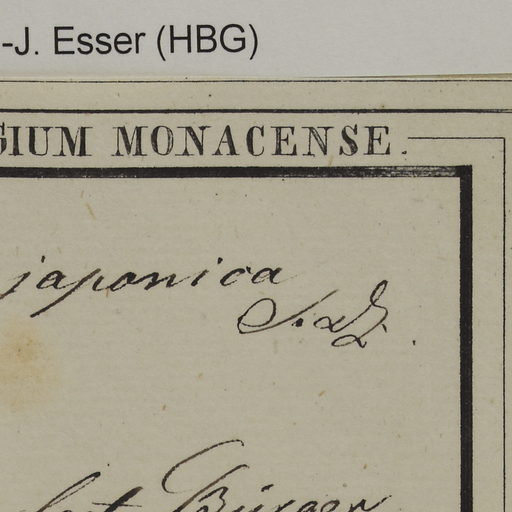 -J. Esser (HBG)
GIUM MONACENSE.
japonica
S. & Z.
Bürger